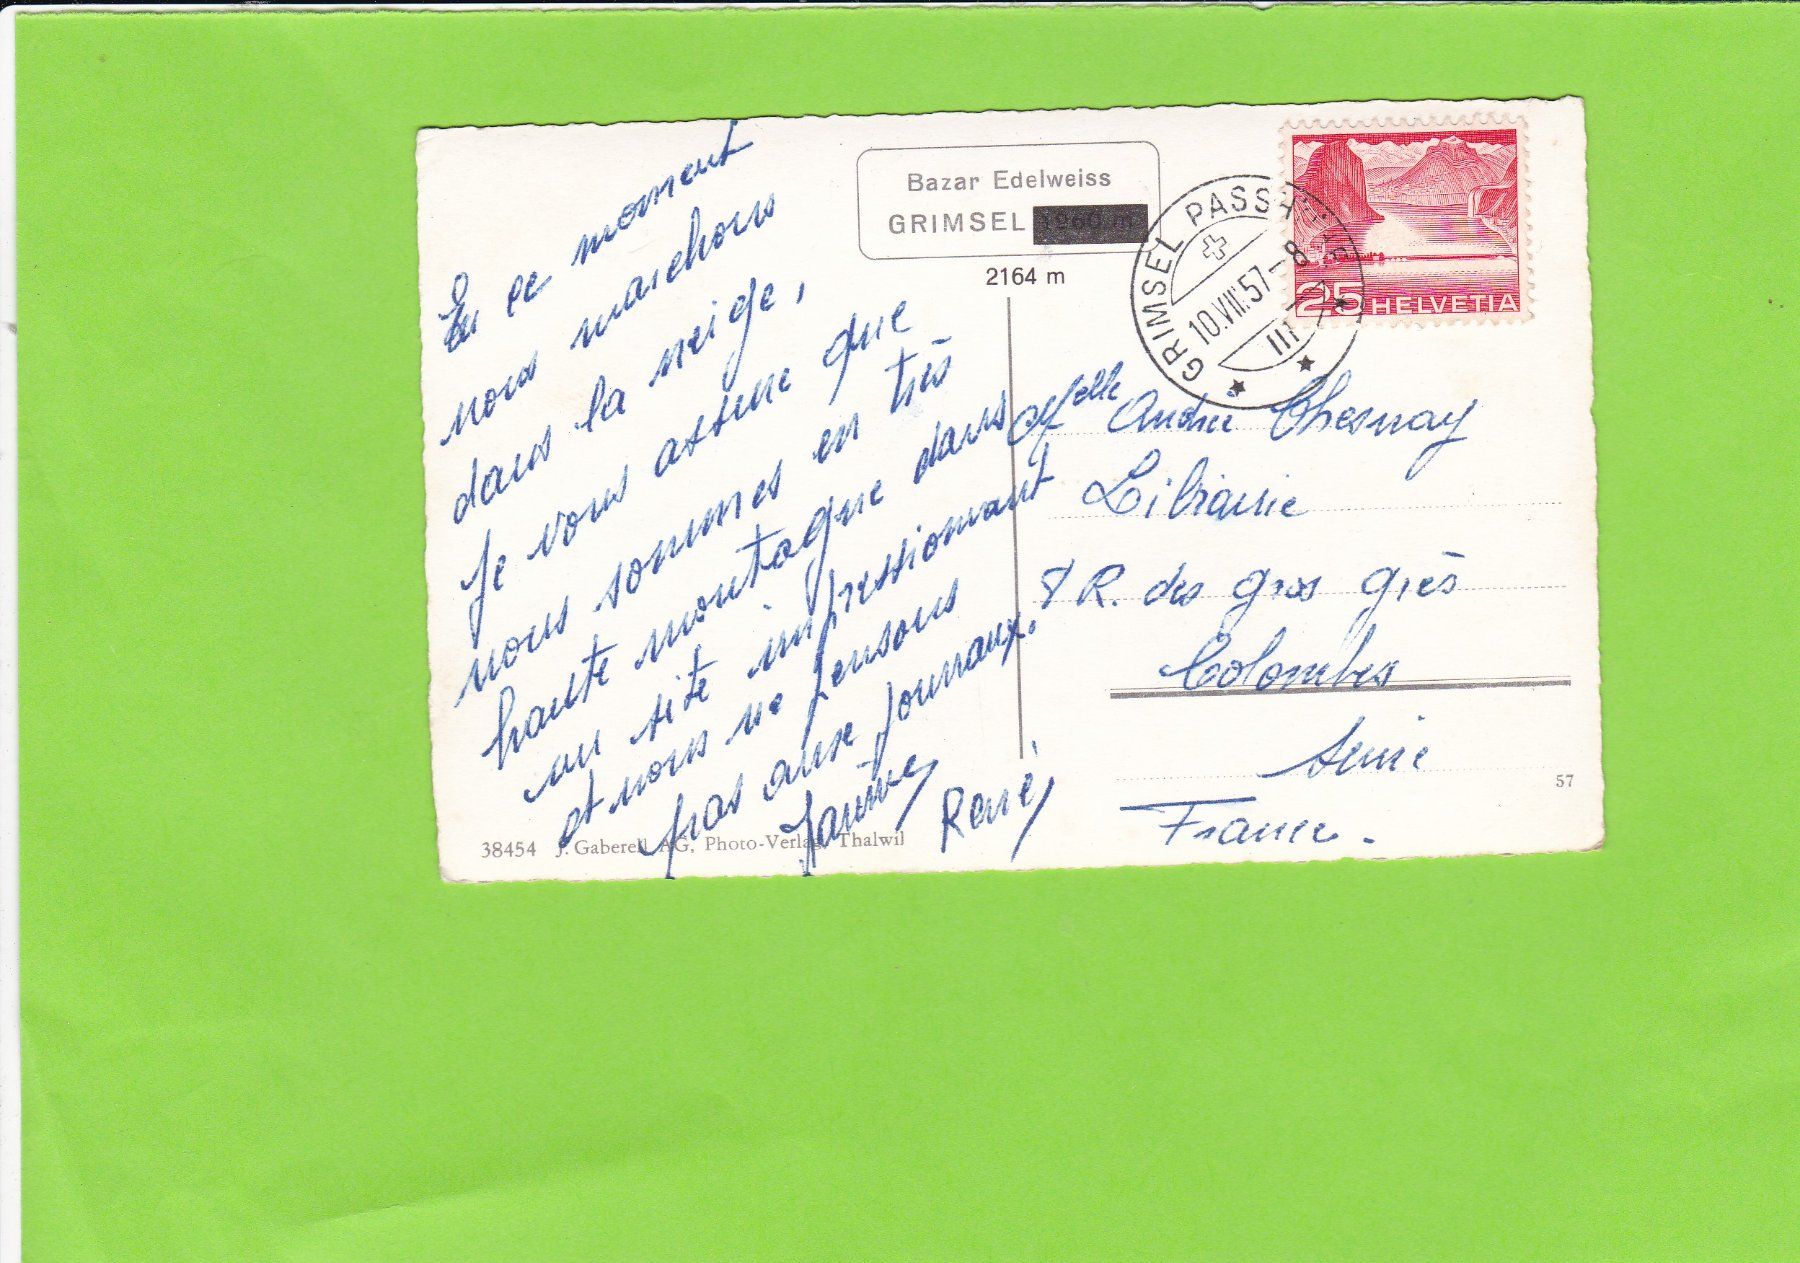 En ce moment
nous marchons
dans la neige,
Je vous assure que
nous sommes en très
haute montagne dans
un site impressionnant
et nous ne pensons
pas aux journaux.
René
Bazar Edelweiss
GRIMSEL 1960 m
2164 m
GRIMSEL PASSHÖHE
10.VIII.57-8
25 HELVETIA
Melle Andrée Chesnay
Librairie
8 R. des Gros Grès
Colombes
Seine
France.
57
38454 J. Gaberell AG, Photo-Verlag, Thalwil